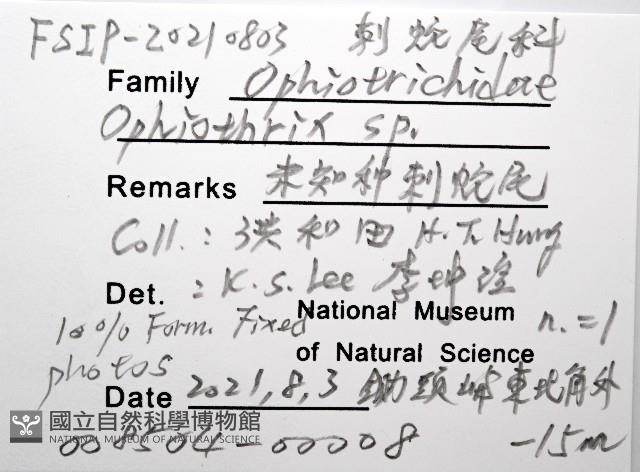 FSIP-20210803 刺蛇尾科
Family Ophiotrichidae
Ophiothrix sp.
Remarks 未知种刺蛇尾
Coll.: 洪和田 H.T. Hung
Det. : K.S. Lee 李坤瑄
10% Form. Fixed National Museum n.=1
photos of Natural Science
Date 2021,8,3 鋤頭嶼東北角外
國立自然科學博物館
NATIONAL MUSEUM OF NATURAL SCIENCE
000504-00008 -15m